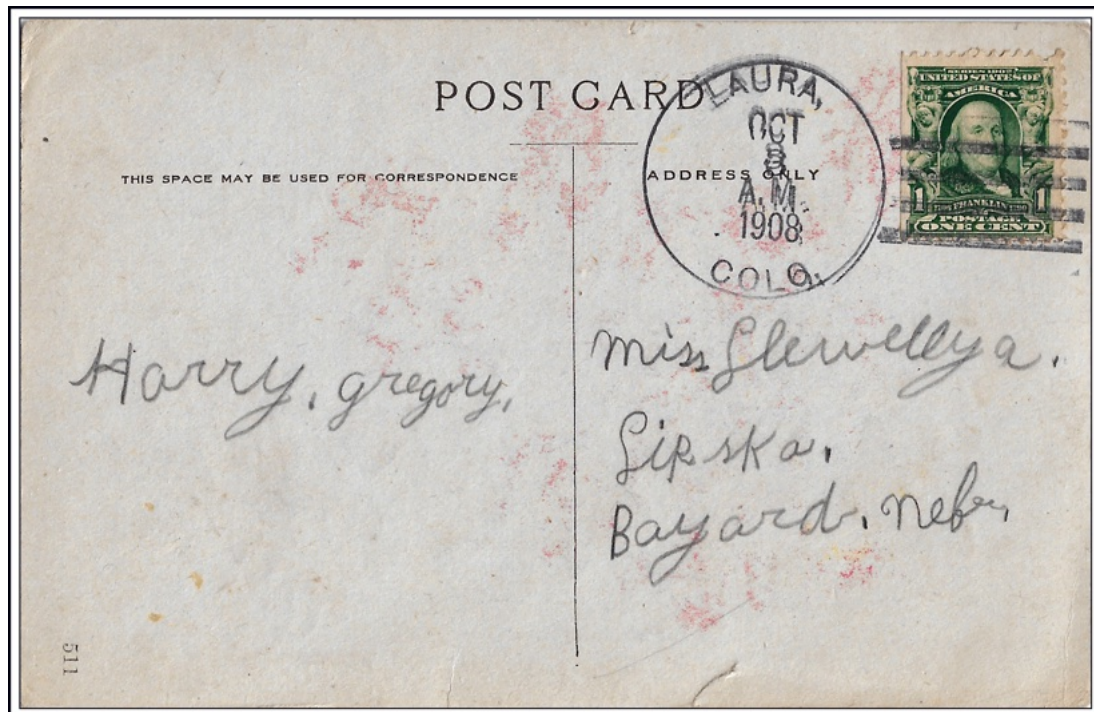 POST CARD
THIS SPACE MAY BE USED FOR CORRESPONDENCE
ADDRESS ONLY
LAURA,
OCT
8
A.M.
1908
COLO.
SERIES 1902
UNITED STATES OF
AMERICA
1 FRANKLIN 1
POSTAGE
ONE CENT
Harry, gregory,
Miss Llewellya.
Lipska.
Bayard, Nebr,
511